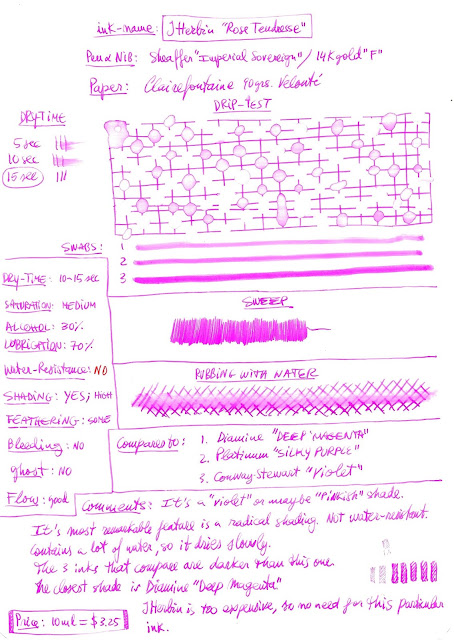 ink-name: JHerbin "Rose Tendresse"
Pen & Nib: Sheaffer "Imperial Sovereign" / 14K gold "F"
Paper: Clairefontaine 90grs. Velouté
DRIP-TEST
DRY-TIME
5 sec
10 sec
15 sec
SWABS: 1
2
3
DRY-TIME: 10-15 sec
SATURATION: MEDIUM
ALCOHOL: 30%
LUBRICATION: 70%
Water-Resistance: NO
SHADING: YES; HIGH
FEATHERING: SOME
Bleeding: NO
ghost: NO
Flow: good
SWEEP
RUBBING WITH WATER
Compares to: 1. Diamine "DEEP MAGENTA"
2. Platinum "SILKY PURPLE"
3. Conway-Stewart "Violet"
Comments: It's a "violet" or maybe "Pinkish" shade.
It's most remarkable feature is a radical shading. Not water-resistant.
Contains a lot of water, so it dries slowly.
The 3 inks that compare are darker than this one.
The closest shade is Diamine "Deep Magenta"
JHerbin is too expensive, so no need for this particular
ink.
Price: 10ml = $3.25